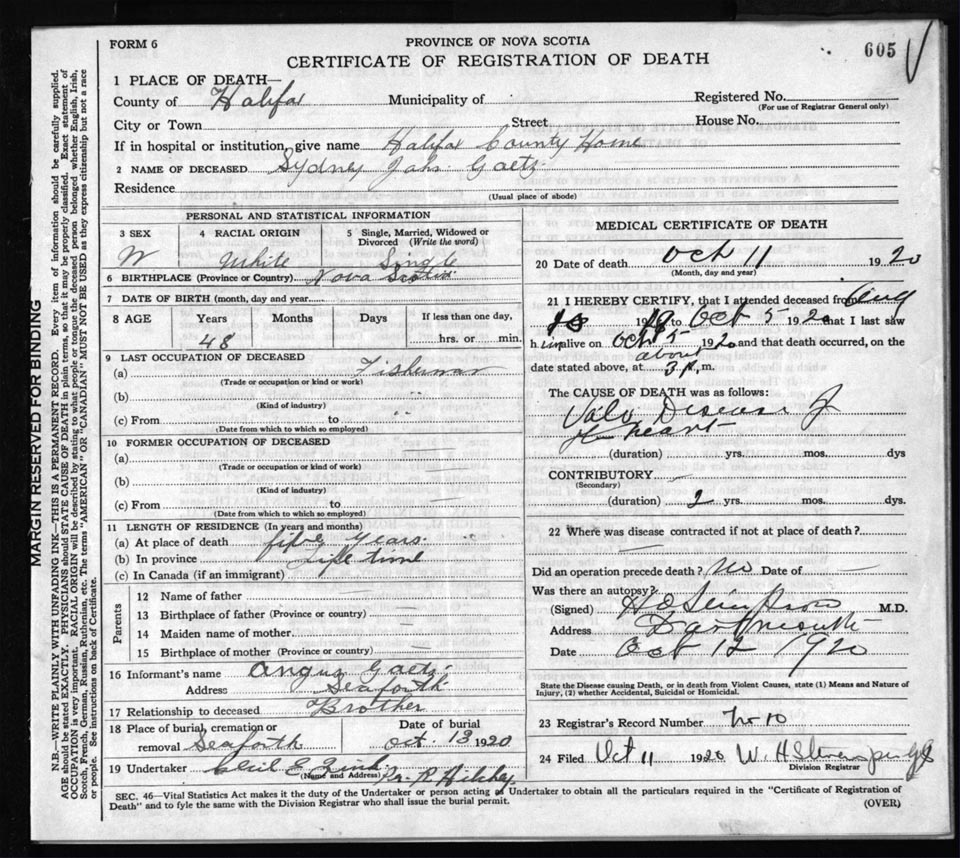 FORM 6
PROVINCE OF NOVA SCOTIA
605
CERTIFICATE OF REGISTRATION OF DEATH
1 PLACE OF DEATH—
County of Halifax Municipality of Registered No.
(For use of Registrar General only)
City or Town Street House No.
If in hospital or institution, give name Halifax County Home
2 NAME OF DECEASED Sydney John Gaetz
Residence
(Usual place of abode)
PERSONAL AND STATISTICAL INFORMATION
3 SEX 4 RACIAL ORIGIN 5 Single, Married, Widowed or
Divorced (Write the word)
White Single
6 BIRTHPLACE (Province or Country) Nova Scotia
7 DATE OF BIRTH (month, day and year)
8 AGE Years Months Days If less than one day,
48 hrs. or min.
9 LAST OCCUPATION OF DECEASED
(a) Fisherman
(Trade or occupation or kind of work)
(b)
(Kind of industry)
(c) From to
(Date from which to which so employed)
10 FORMER OCCUPATION OF DECEASED
(a)
(Trade or occupation or kind of work)
(b)
(Kind of industry)
(c) From to
(Date from which to which so employed)
11 LENGTH OF RESIDENCE (In years and months)
(a) At place of death years
(b) In province Life time
(c) In Canada (if an immigrant)
Parents
12 Name of father
13 Birthplace of father (Province or country)
14 Maiden name of mother
15 Birthplace of mother (Province or country)
16 Informant's name Angus Gaetz
Address Seaforth
17 Relationship to deceased Brother
18 Place of burial, cremation or Date of burial
removal Seaforth Oct. 13 1920
19 Undertaker
(Name and Address)
MEDICAL CERTIFICATE OF DEATH
20 Date of death Oct 11 1920
(Month, day and year)
21 I HEREBY CERTIFY, that I attended deceased from Aug
19 to Oct 5 1920 that I last saw
him alive on Oct 5 1920 and that death occurred, on the
about
date stated above, at 3 A. m.
The CAUSE OF DEATH was as follows:
Valv Disease of
heart
(duration) yrs. mos. dys
CONTRIBUTORY
(Secondary)
(duration) 2 yrs. mos. dys.
22 Where was disease contracted if not at place of death?
Did an operation precede death? no Date of
Was there an autopsy?
(Signed) M.D.
Address Dartmouth
Date Oct 12 1920
State the Disease causing Death, or in death from Violent Causes, state (1) Means and Nature of
Injury, (2) whether Accidental, Suicidal or Homicidal.
23 Registrar's Record Number No 10
24 Filed Oct 11 1920 W. H.
Division Registrar
SEC. 46—Vital Statistics Act makes it the duty of the Undertaker or person acting as Undertaker to obtain all the particulars required in the "Certificate of Registration of
Death" and to fyle the same with the Division Registrar who shall issue the burial permit. (OVER)
MARGIN RESERVED FOR BINDING
N.B.—WRITE PLAINLY WITH UNFADING INK—THIS IS A PERMANENT RECORD. Every item of information should be carefully supplied.
AGE should be stated EXACTLY. PHYSICIANS should STATE CAUSE OF DEATH in plain terms, so that it may be properly classified. Exact statement of
OCCUPATION is very important. RACIAL ORIGIN will be described by stating to what people or tongue the deceased person belonged whether English, Irish,
Scotch, French, German, Russian, Ruthenian, etc. The terms "AMERICAN" OR "CANADIAN" MUST NOT BE USED as they express citizenship but not a race
or people. See instructions on back of Certificate.